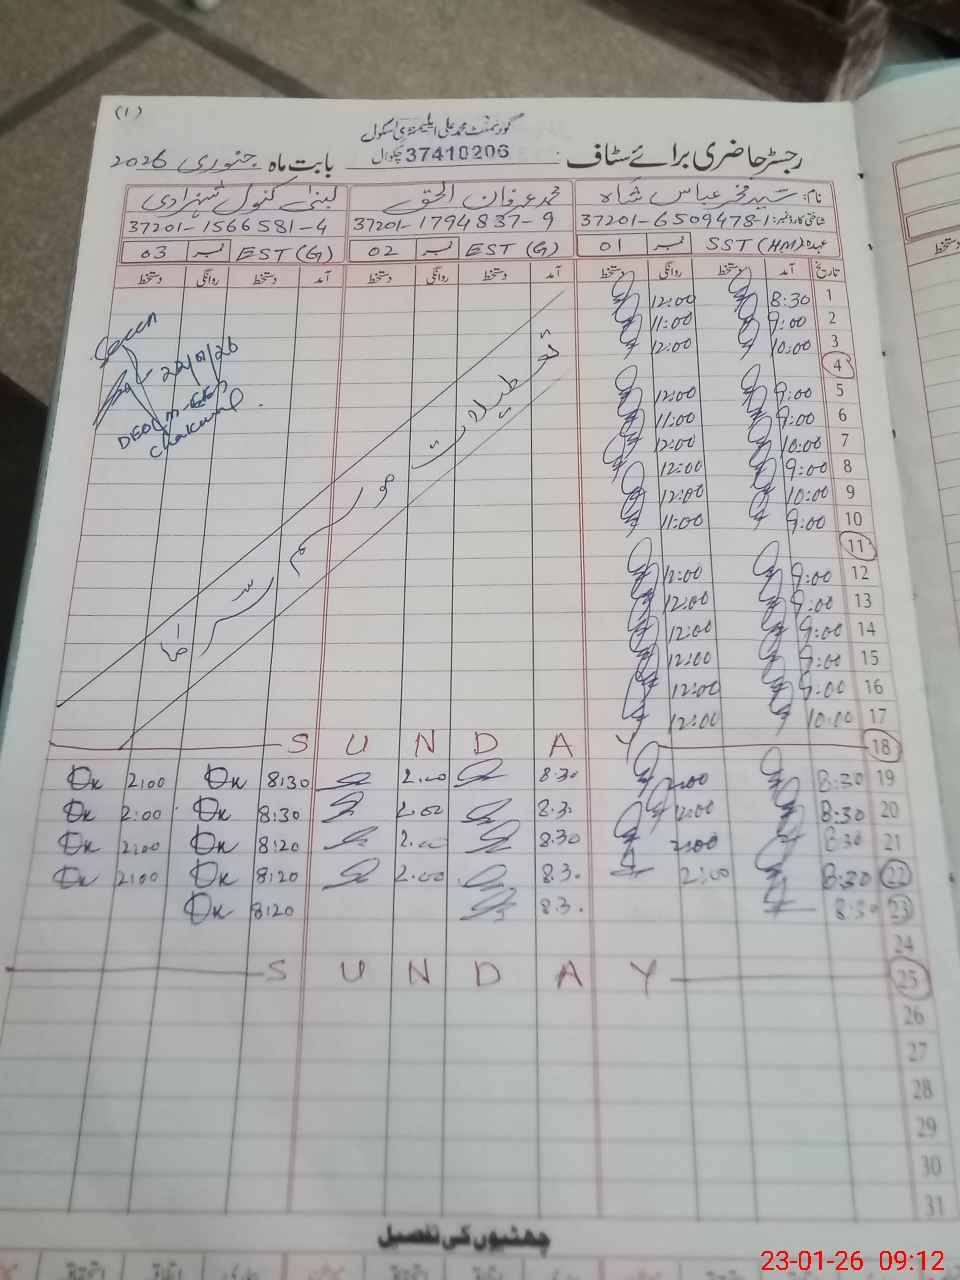 (1)
گورنمنٹ محمد علی ایلیمنٹری اسکول
رجسٹر حاضری برائے سٹاف 37410206 چکوال بابت ماہ جنوری 2026
نام: سید فخر عباس شاہ محمد عرفان الحق لبنیٰ کنول شہزادی
شناختی کارڈ نمبر: 37201-6509478-1 37201-1794837-9 37201-1566581-4
عہدہ SST (HM) نمبر 01 EST (G) نمبر 02 EST (G) نمبر 03
تاریخ آمد دستخط روانگی دستخط آمد دستخط روانگی دستخط آمد دستخط روانگی دستخط
1 8:30 12:00
2 9:00 11:00
3 10:00 12:00
4
5 9:00 12:00
6 9:00 11:00
7 10:00 12:00
8 9:00 12:00
9 10:00 12:00
10 9:00 11:00
11
12 9:00 12:00
13 9:00 12:00
14 9:00 12:00
15 9:00 12:00
16 9:00 12:00
17 10:00 12:00
تعطیلات موسم سرما
Seen
22/01/26
DEO (M-EE)
Chakwal
18 SUNDAY
19 8:30 2:00 8:30 2:00 8:30 2:00
20 8:30 2:00 8:3. 2:00 8:30 2:00
21 8:30 2:00 8:30 2:00 8:20 2:00
22 8:30 2:00 8:3. 2:00 8:20 2:00
23 8:30 8:3. 8:20
24
25 SUNDAY
26
27
28
29
30
31
چھٹیوں کی تفصیل
23-01-26 09:12